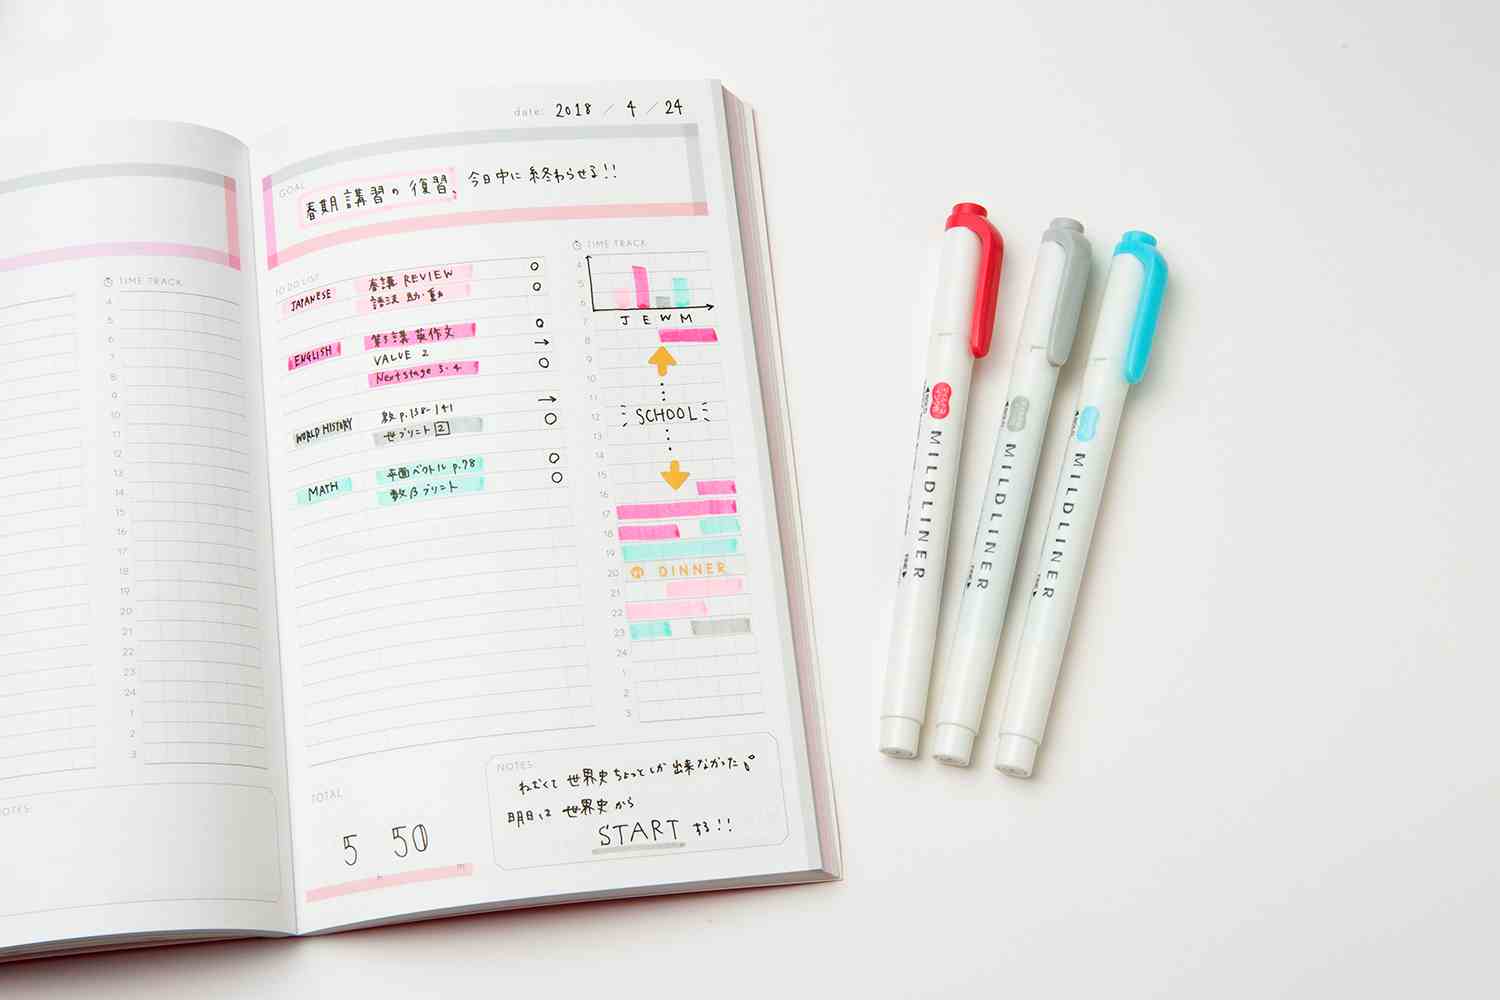 TIME TRACK
4
5
6
7
8
9
10
11
12
13
14
15
16
17
18
19
20
21
22
23
24
1
2
3
NOTES:
date: 2018 / 4 / 24
GOAL
春期講習の復習、今日中に終わらせる!!
TO DO LIST
JAPANESE 春講 REVIEW
語法 助・動
ENGLISH 第5講 英作文
VALUE 2
Nextstage 3・4
WORLD HISTORY 教 p.138-141
世プリント 2
MATH 平面ベクトル p.98
数Bプリント
TIME TRACK
4
5
6
J E W M
7
8
9
10
11
12 SCHOOL
13
14
15
16
17
18
19
20 DINNER
21
22
23
24
1
2
3
TOTAL
5 h 50 m
NOTES:
ねむくて世界史ちょっとしか出来なかった
明日は世界史から
START する!!
MILDLINER
MILDLINER
MILDLINER